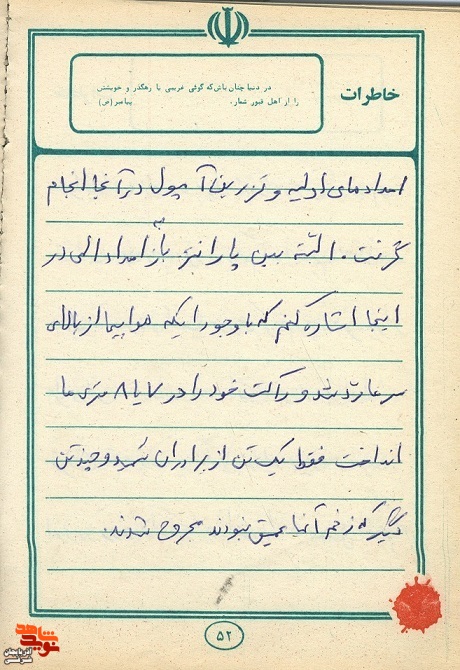 خاطرات
در دنیا چنان باش که گوئی غریبی یا رهگذر و خویشتن
را از اهل قبور شمار. پیامبر(ص)
امدادهای اولیه و تزریق آمپول در آنجا انجام
گرفت. البته من باز به امداد الهی در
اینجا اشاره کنم که با وجود اینکه هواپیما از بالای
سر ما رد شد و راکت خود را در ۷ یا ۸ متری ما
انداخت فقط یک تن از برادران شهید و چند تن
دیگر که زخم آنها عمیق نبودند مجروح شدند.
۵۲
نوید شاهد
آذربایجان شرقی